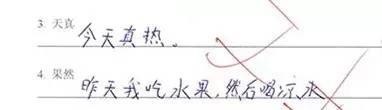 3. 天真
今天真热。
4. 果然
昨天我吃水果，然后喝凉水